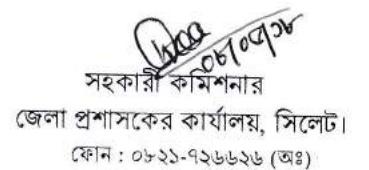 ০৮/০৫/১৮
সহকারী কমিশনার
জেলা প্রশাসকের কার্যালয়, সিলেট।
ফোন : ০৮২১-৭২৬৬২৬ (অঃ)